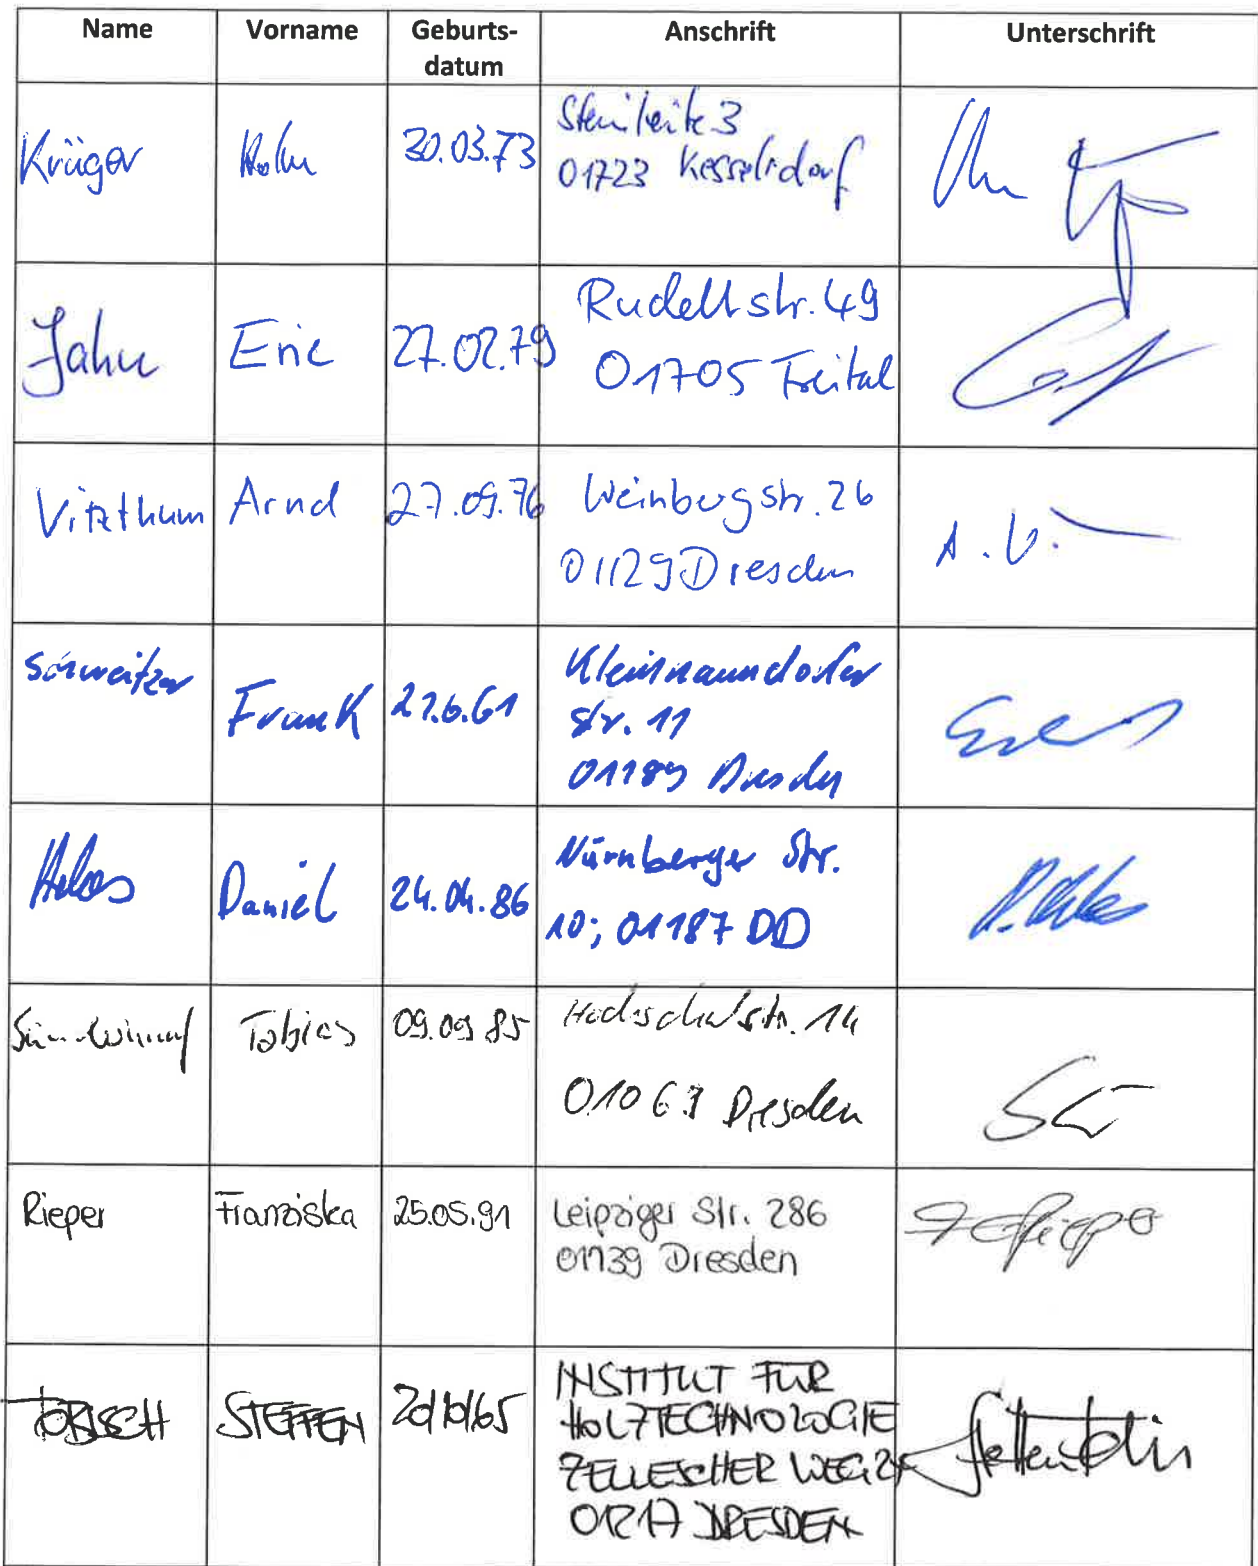 Name Vorname Geburts- Anschrift Unterschrift
datum
Krüger Holm 30.03.73 Steinleite 3
01723 Kesselsdorf
Jahn Eric 27.02.79 Rudeltstr. 49
01705 Freital
Vitzthum Arnd 27.09.76 Weinbergstr. 26
01129 Dresden
A. V.
Schweitzer Frank 27.6.61 Kleinnaundorfer
Str. 11
01189 Dresden
Daniel 24.04.86 Nürnberger Str.
10; 01187 DD
Tobias 09.09.85 Hochschulstr. 14
01069 Dresden
Rieper Franziska 25.05.91 Leipziger Str. 286
01139 Dresden
TOBISCH STEFFEN INSTITUT FÜR
HOLZTECHNOLOGIE
ZELLESCHER WEG 24
01217 DRESDEN